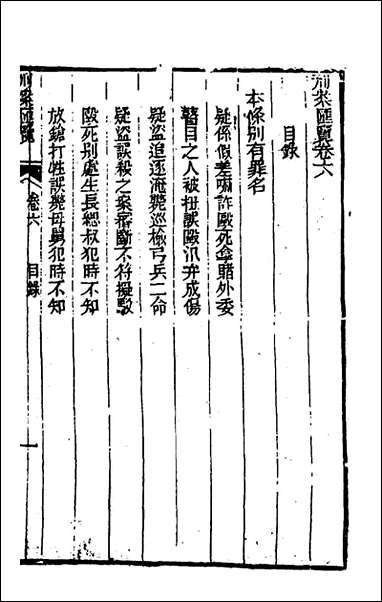 刑案匯覽卷六
目錄
本條別有罪名
疑係假差嚇詐毆死拿賭外委
瞽目之人被扭誤毆汛弁成傷
疑盜追逐淹斃巡檢弓兵二命
疑盜誤殺之案審斷不符擬駁
毆死別處生長緦叔犯時不知
放鎗打牲誤斃母舅犯時不知
刑案匯覽
卷六
目錄
一